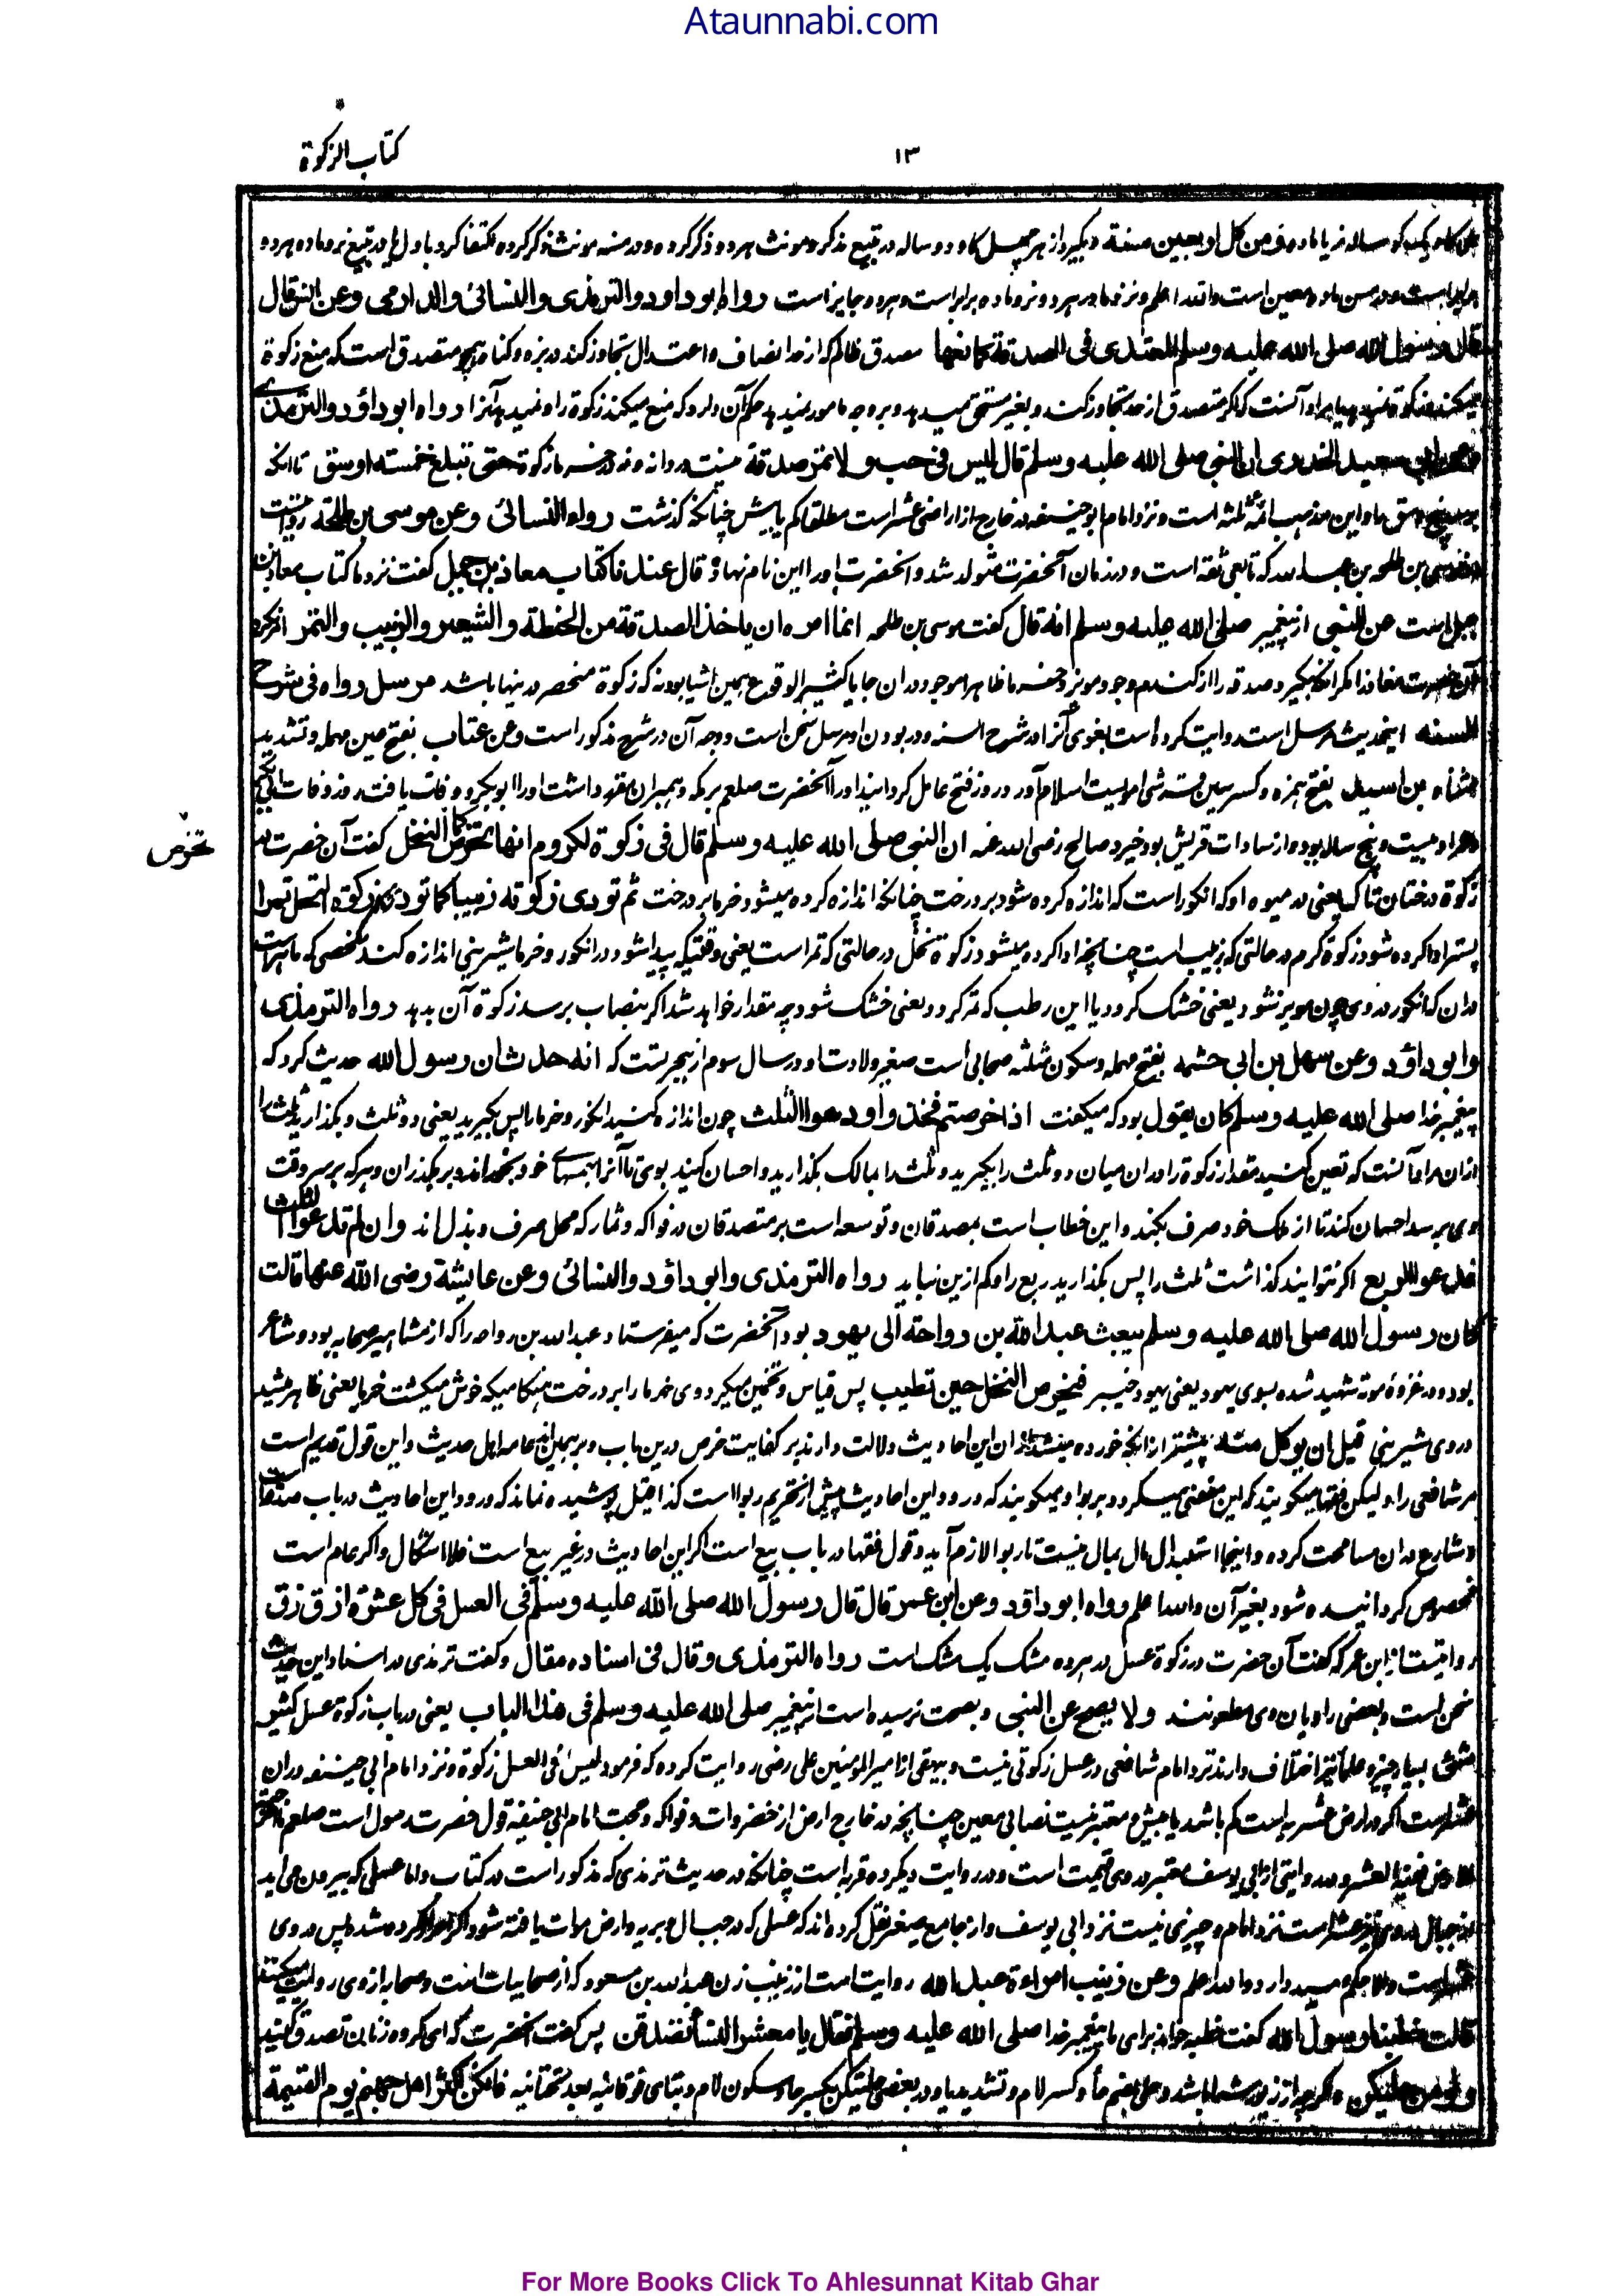 Ataunnabi.com
کتاب الزکوة
۱۳
یکساله نر یا ماده و من کل اربعین مسنة و بگیرد از هر چهل گاو دو ساله در تبیع مذکر و مونث هر دو ذکر کرده و در مسنه مونث ذکر کرده مکتفا کرد باول یا در تبیع نر و ماده هر دو
برابر است و در مسن ماده معین است والله اعلم و نزد ما در هر دو نر و ماده برابر است و هر دو جایز است رواه ابو داود والترمذی والنسائی والدارمی وعن انس قال
قال رسول الله صلی الله علیه وسلم المعتدی فی الصدقة کمانعها مصدق ظالم که از حد انصاف و اعتدال تجاوز کند در بزه و گناه همچو متصدق است که منع زکوة
میکند زکوة نمیدهد یا مراد آنست که اگر متصدق از حد تجاوز کند و بغیر مستحق میدهد و بر وجه مامور نمیدهد حکم آن دارد که منع میکند زکوة را و نمیدهد آنرا رواه ابو داؤد والترمذی
وعن ابی سعید الخدری ان النبی صلی الله علیه وسلم قال لیس فی حب ولا تمر صدقة نیست در دانه و نه در خرما زکوة حتی تبلغ خمسة اوسق تا آنکه
برسد پنج وسق را و این مذهب ائمه ثلثه است و نزد امام ابو حنیفه در خارج از اراضی عشر است مطلقا کم یا بیش چنانکه گذشت رواه النسائی وعن موسی بن طلحة روایتست
از موسی بن طلحه بن عبد الله که تابعی ثقه است و در زمان آنحضرت متولد شد و آنحضرت او را این نام نهاد قال عندنا کتاب معاذ بن جبل گفت نزد ما کتاب معاذ بن
جبل است عن النبی از پیغمبر صلی الله علیه وسلم انه قال گفت موسی بن طلحه انما امره ان یاخذ الصدقة من الحنطة والشعیر والزبیب والتمر امر نکرد
آنحضرت معاذ را مگر آنکه بگیرد صدقه را از گندم و جو و مویز و خرما ظاهرا موجود در آن جا یا کثیر الوقوع همین اشیا بودند که زکوة منحصر در ینها باشد مرسل رواه فی شرح
السنة این حدیث مرسل است روایت کرده است بغوی آنرا در شرح السنه و در بودن او مرسل سخن است و وجه آن در شرح مذکور است وعن عتاب بفتح عین مهمله و تشدید
مثناه بن اسید بفتح همزه و کسر سین قرشی امویست اسلام آورد روز فتح عامل گردانید او را آنحضرت صلعم بر مکه و همبران مقرر داشت او را ابو بکر و وفات یافت روز وفات ابی بکر
و عمر او بیست و پنج ساله بود و از سادات قریش بود خیر و صالح رضی الله عنه ان النبی صلی الله علیه وسلم قال فی زکوة الکروم انها تخرص کما تخرص النخل گفت آن حضرت در
تخرص
زکوة درختان تاک یعنی در میوه او که انگور است که اندازه کرده شود بر درخت چنانکه اندازه کرده میشود خرما بر درخت ثم تودی زکوته زبیبا کما تودی زکوة النخل تمرا
پستر ادا کرده شود زکوة کرم در حالتی که زبیب است چنانچه ادا کرده میشود زکوة نخل در حالتی که تمر است یعنی وقتیکه پیدا شود در انگور و خرما شیرینی اندازه کند شخصی که ماهر است
دران که انگور در وی چون مویز شود یعنی خشک گردد یا این رطب که تمر گردد یعنی خشک شود چه مقدار خواهد شد اگر بنصاب برسد زکوة آن بدهد رواه الترمذی
وابو داؤد وعن سهل بن ابی حثمه بفتح مهمله و سکون مثلثه صحابی است صغیر ولادت او در سال سوم از هجرتست که انه حدث ان رسول الله حدیث کرد که
پیغمبر خدا صلی الله علیه وسلم کان یقول بود که میگفت اذا خرصتم فخذوا ودعوا الثلث چون اندازه کنید انگور و خرما را پس بگیرید یعنی دو ثلث و بگذارید ثلث را
ازان مراد آنست که تعین کنید مقدار زکوة را در ان میان دو ثلث را بگیرید و ثلث را بمالک بگذارید و احسان کنید بوی تا آنرا همسایهای خود بخوراند و بر گذران و هر که بر سر وقت
وی برسد احسان کند تا از ملک خود صرف نکند و این خطاب است بمصدقان و توسعه است بر متصدقان در فواکه و ثمار که محل صرف و بذل اند وان لم تدعوا الثلث
فدعوا الربع اگر نتوانید گذاشت ثلث را پس بگذارید ربع را و کم ازین نباید رواه الترمذی وابو داؤد والنسائی وعن عایشة رضی الله عنها قالت
کان رسول الله صلی الله علیه وسلم یبعث عبد الله بن رواحة الی یهود بود آنحضرت که میفرستاد عبد الله بن رواحه را که از مشاهیر صحابه بود و شاعر
بود و در غزوهٔ موته شهید شده بسوی یهود یعنی یهود خیبر فیخرص النخل حین تطیب پس قیاس و تخمین میکرد وی خرما را بر درخت هنگامیکه خوش میگشت خرما یعنی ظاهر میشد
در وی شیرینی قبل ان یوکل منه پیشتر از آنکه خورده میشد از ان این احادیث دلالت دارند بر کفایت خرص درین باب و بر همین اند عامه اهل حدیث و این قول قدیم است
مر شافعی را و لیکن فقها میگویند که این مفضی میگردد بربوا و میگویند که ورود این احادیث پیش از تحریم ربوا است کذا قیل پوشیده نماند که ورود این احادیث در باب صدقه است
و شارع در ان مسامحت کرده و اینجا استبدال مال بمال نیست تا ربوا لازم آید و قول فقها در باب بیع است اگر این احادیث در غیر بیع است فلا اشکال و اگر عام است
مخصوص گردانیده شود بغیر آن والله اعلم رواه ابو داؤد وعن ابن عمر قال قال رسول الله صلی الله علیه وسلم فی العسل فی کل عشرة ازق زق
روایتست از ابن عمر که گفت آن حضرت در زکوة عسل در هر ده مشک یک مشک است رواه الترمذی وقال فی اسناده مقال و گفت ترمذی در اسناد این حدیث
سخن است و بعضی راویان وی مطعونند ولا یصح عن النبی و بصحت نرسیده است از پیغمبر صلی الله علیه وسلم فی هذا الباب یعنی در باب زکوة عسل کثیر
شئ بسیار چیز و علما نیز اختلاف دارند نزد امام شافعی در عسل زکوتی نیست و بیهقی از امیر المومنین علی رضی روایت کرده که فرمود لیس فی العسل زکوة و نزد امام ابی حنیفه دران
عشر است اگر در ارض عشریه است کم باشد یا بیش و معتبر نیست نصابی معین چنانچه در خارج ارض از خضروات و فواکه و حجت امام ابی حنیفه قول حضرت رسول است صلعم ما اخرجته
الارض ففیه العشر و در روایتی از ابی یوسف معتبر در وی قیمت است و در روایت دیگر ده قربه است چنانکه در حدیث ترمذی که مذکور است در کتاب و اما عسلی که بیرون می آید
از جبال در وی نیز عشر است نزد امام و چیزی نیست نزد ابی یوسف و از جامع صغیر نقل کرده اند که عسلی که در جبال و بریه و ارض موات یافته شود اگر احراز کرده شد پس در وی
عشر است والا حکم صید دارد والله اعلم وعن زینب امراة عبد الله روایت است از زینب زن عبد الله بن مسعود که از صحابیات است و صحابه از وی روایت میکنند
قالت خطبنا رسول الله گفت خطبه خواند برای ما پیغمبر خدا صلی الله علیه وسلم فقال یا معشر النسا تصدقن پس گفت آنحضرت که ای گروه زنان تصدق کنید
ولو من حلیکن و اگر چه از زیور شما باشد و حلی بضم حا و کسر لام و تشدید یا و در بعضی حلیتکن بکسر حا و سکون لام و بتای فوقانیه بعد تحتانیه فانکن اکثر اهل جهنم یوم القیمة
For More Books Click To Ahlesunnat Kitab Ghar